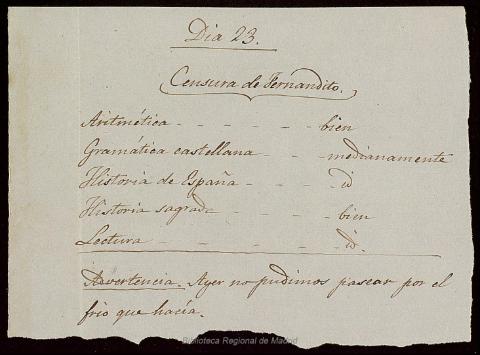 Dia 23.
Censura de Fernandito.
Aritmética - - - - - bien
Gramática castellana - - - medianamente
Historia de España - - - - id
Historia sagrada - - - - bien
Lectura - - - - - id.
Advertencia. Ayer no pudimos pasear por el
frio que hacía.
Biblioteca Regional de Madrid